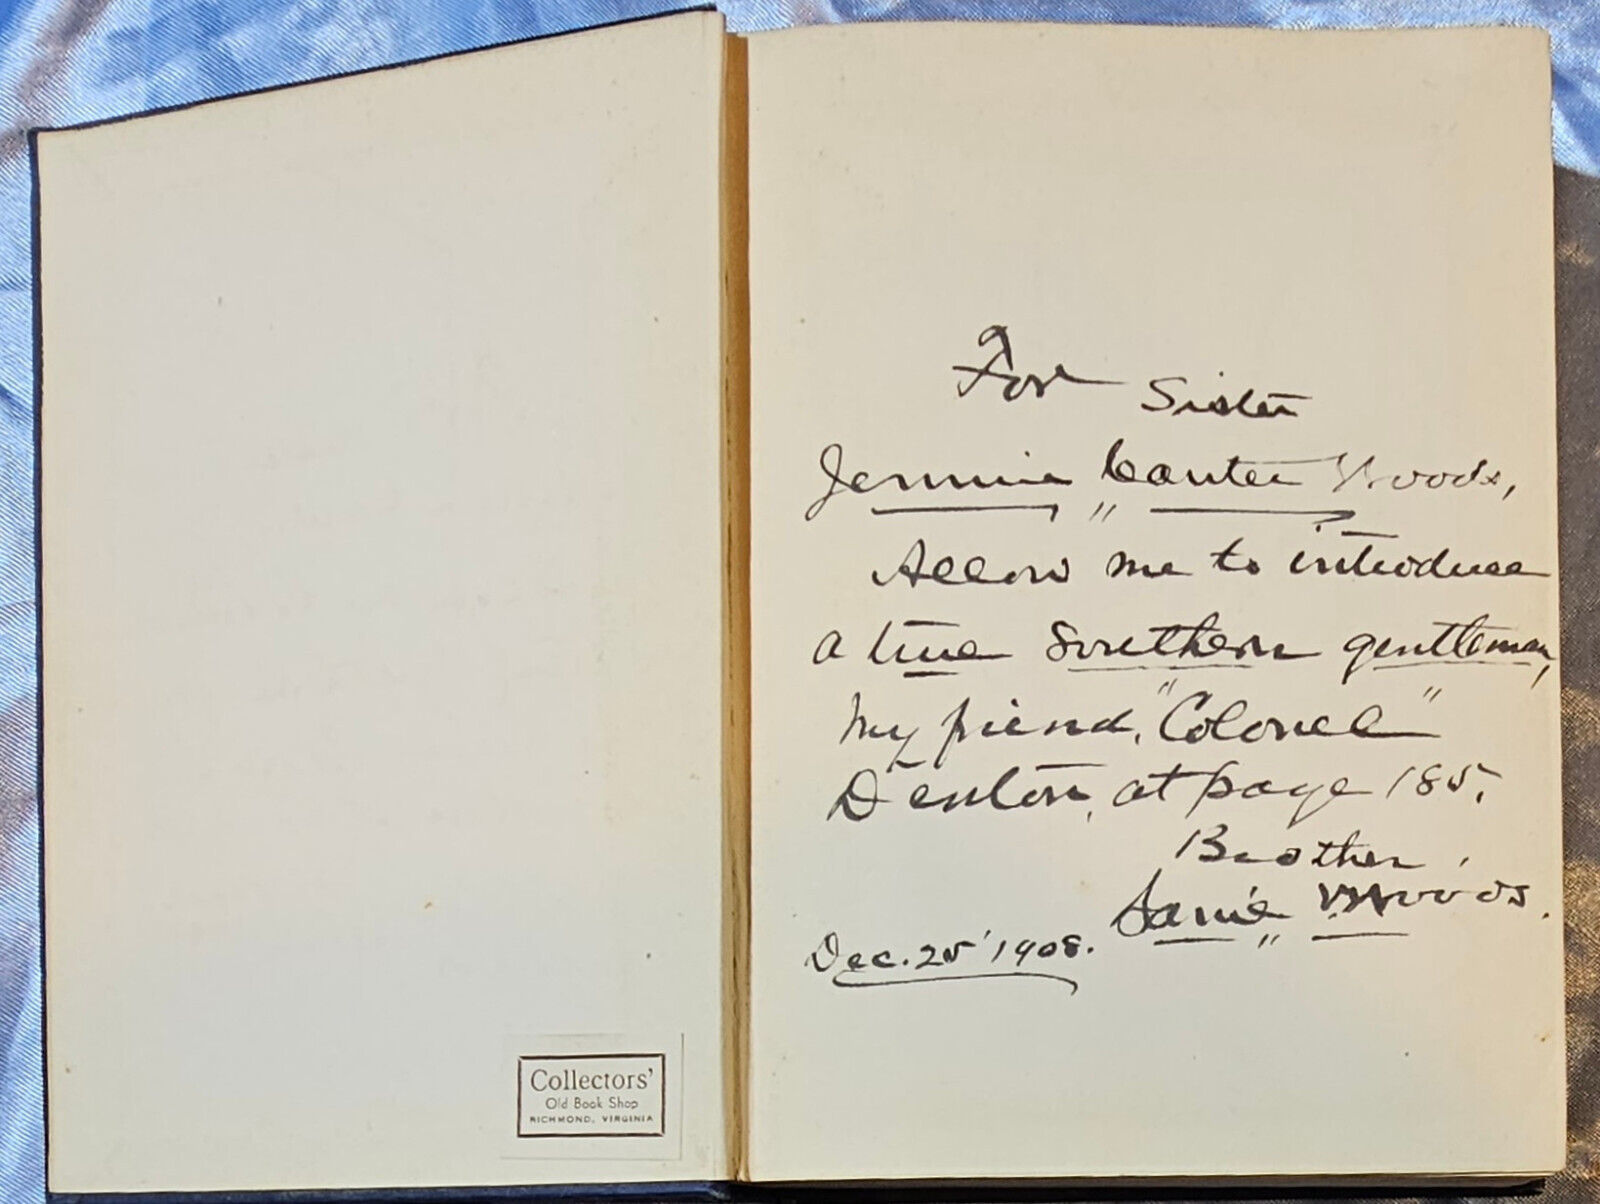 For Sister
Jennie Canter Woods,
Allow me to introduce
a true Southern gentleman,
my friend, "Colonel"
Denton, at page 185.
Brother,
Woods.
Dec. 25' 1908.
Collectors'
Old Book Shop
RICHMOND, VIRGINIA